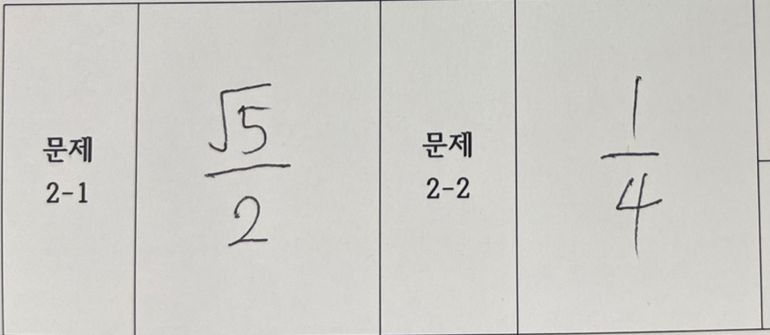 문제
2-1
√5/2
문제
2-2
1/4